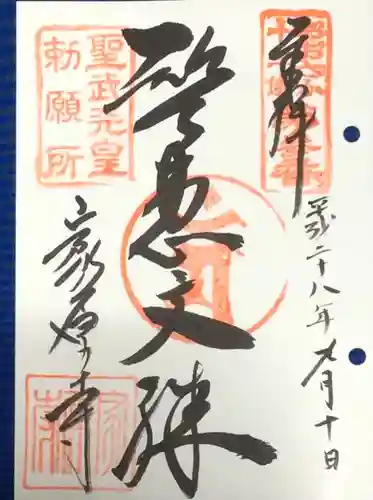 奉拝
平成二十八年九月十日
智恵文殊
家原寺
聖武天皇
勅願所